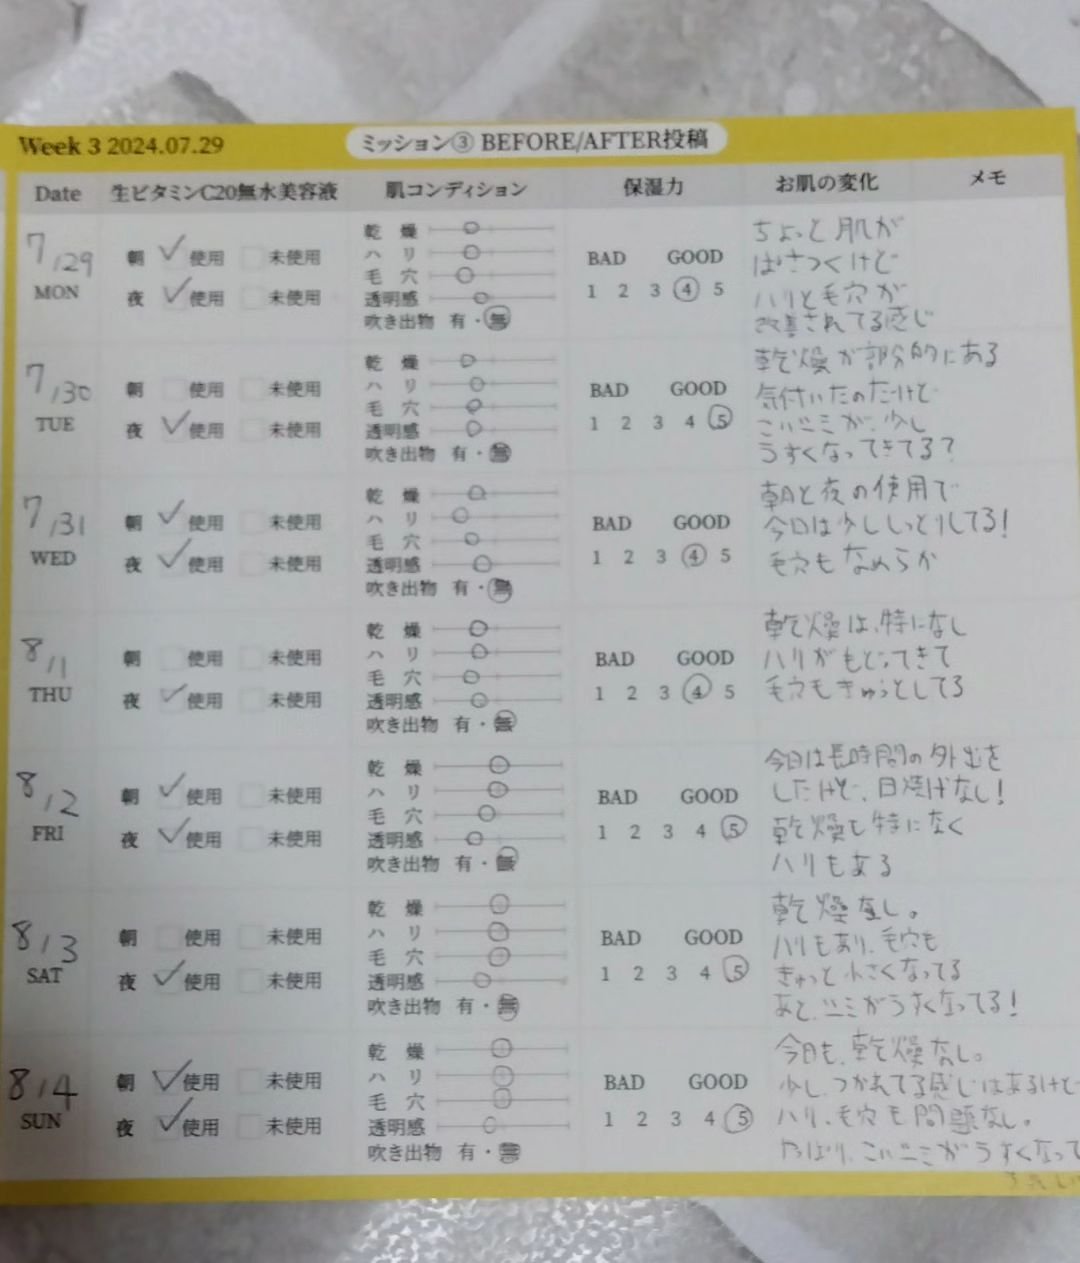 Week 3 2024.07.29 ミッション③ BEFORE/AFTER投稿
Date 生ビタミンC20無水美容液 肌コンディション 保湿力 お肌の変化 メモ
7/29
MON
朝 使用 未使用
夜 使用 未使用
乾 燥
ハ リ
毛 穴
透明感
吹き出物 有・無
BAD GOOD
1 2 3 4 5
ちょっと肌が
ぱさつくけど
ハリと毛穴が
改善されてる感じ
7/30
TUE
朝 使用 未使用
夜 使用 未使用
乾 燥
ハ リ
毛 穴
透明感
吹き出物 有・無
BAD GOOD
1 2 3 4 5
乾燥が部分的にある
気付いたのだけど
こいシミが、少し
うすくなってきてる?
7/31
WED
朝 使用 未使用
夜 使用 未使用
乾 燥
ハ リ
毛 穴
透明感
吹き出物 有・無
BAD GOOD
1 2 3 4 5
朝と夜の使用で
今日は少ししっとりしてる!
毛穴もなめらか
8/1
THU
朝 使用 未使用
夜 使用 未使用
乾 燥
ハ リ
毛 穴
透明感
吹き出物 有・無
BAD GOOD
1 2 3 4 5
乾燥は、特になし
ハリがもどってきて
毛穴もきゅっとしてる
8/2
FRI
朝 使用 未使用
夜 使用 未使用
乾 燥
ハ リ
毛 穴
透明感
吹き出物 有・無
BAD GOOD
1 2 3 4 5
今日は長時間の外出を
したけど、日焼けなし!
乾燥も特になく
ハリもある
8/3
SAT
朝 使用 未使用
夜 使用 未使用
乾 燥
ハ リ
毛 穴
透明感
吹き出物 有・無
BAD GOOD
1 2 3 4 5
乾燥なし。
ハリもあり、毛穴も
きゅっと小さくなってる
あと、シミがうすくなってる!
8/4
SUN
朝 使用 未使用
夜 使用 未使用
乾 燥
ハ リ
毛 穴
透明感
吹き出物 有・無
BAD GOOD
1 2 3 4 5
今日も、乾燥なし。
少し、つかれてる感じはあるけど
ハリ、毛穴も問題なし。
やっぱり、こいシミがうすくなって